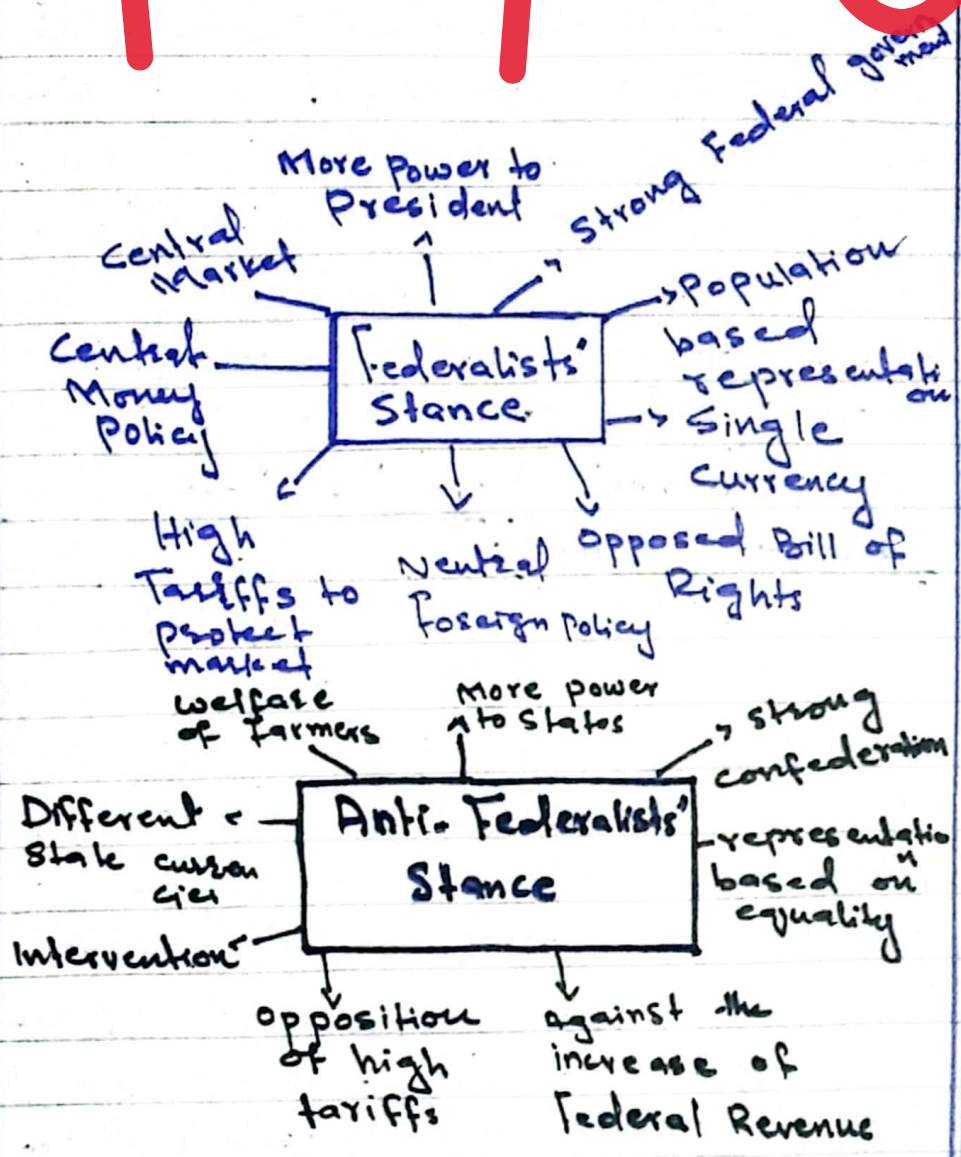 More Power to
President
Strong Federal govern
ment
Central
Market
Population
based
representati
on
Central
Money
Policy
Federalists'
Stance.
Single
Currency
High
Tariffs to
protect
market
Neutral
Foreign Policy
Opposed Bill of
Rights
welfare
of Farmers
More power
to States
strong
confederation
Different
State curren
cies
Anti-Federalists'
Stance
representatio
n
based on
equality
Intervention
opposition
of high
tariffs
against the
increase of
Federal Revenue